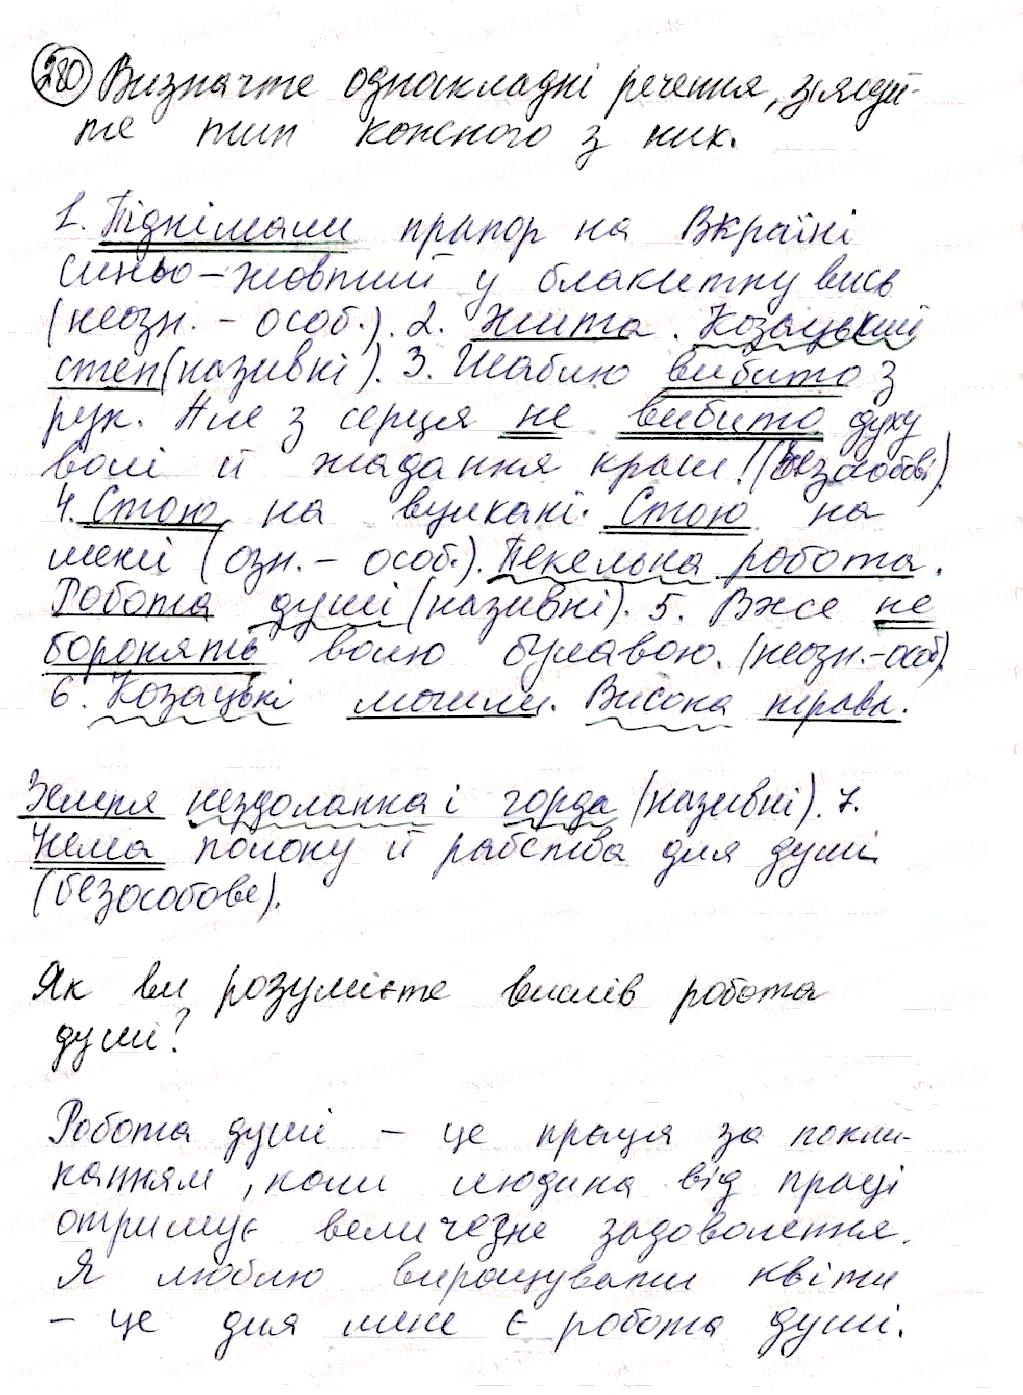 280 Визначте односкладні речення, з'ясуй-
те тип кожного з них.
1. Піднімали прапор на Вкраїні
синьо-жовтий у блакитну вись
(неозн. - особ.). 2. Жита. Козацький
степ (називні). 3. Шаблю вибито з
рук. Але з серця не вибито духу
волі й жадання краси! (безособові).
4. Стою на вулкані. Стою на
межі (озн. - особ.). Пекельна робота.
Робота душі (називні). 5. Вже не
боронять волю булавою. (неозн.-особ).
6. Козацькі могили. Висока трава.
Земля нездоланна і горда (називні). 7.
Нема полону й рабства для душі
(безособове).
Як ви розумієте вислів робота
душі?
Робота душі - це праця за покли-
канням, коли людина від праці
отримує величезне задоволення.
Я люблю вирощувати квіти
- це для мене є робота душі.